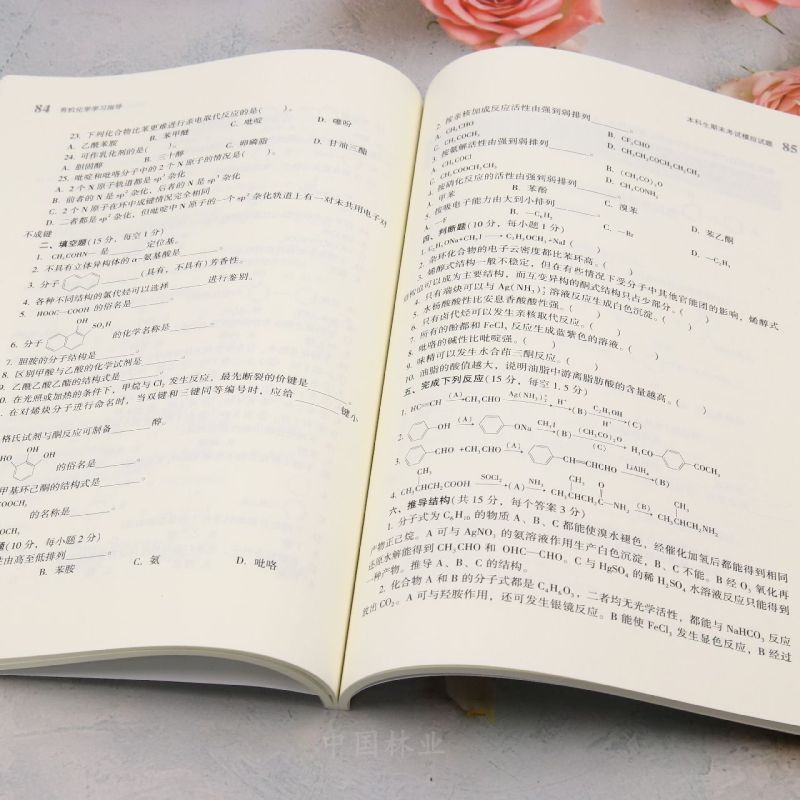 84 有机化学学习指导
23. 下列化合物比苯更难进行亲电取代反应的是( )。
A. 乙酰苯胺 B. 苯甲醚 C. 吡啶 D. 噻吩
24. 可作乳化剂的是( )。
A. 胆固醇 B. 三十醇 C. 卵磷脂 D. 甘油三酯
25. 吡啶和吡咯分子中的 2 个 N 原子的情况是( )。
A. 2 个 N 原子轨道都是 sp³ 杂化
B. 前者的 N 是 sp² 杂化，后者的 N 是 sp³ 杂化
C. 2 个 N 原子在环中成键情况完全相同
D. 二者都是 sp² 杂化，但吡啶中 N 原子的一个 sp² 杂化轨道上有一对未共用电子对
不成键
二、填空题(15 分，每空 1 分)
1. CH₃COHN— 是______定位基。
2. 不具有立体异构体的 α-氨基酸是______。
3. 分子 ______(具有，不具有)芳香性。
4. 各种不同结构的氯代烃可以选择______进行鉴别。
5. HOOC—COOH 的俗名是______。
OH SO₃H
6. 分子 的化学名称是______。
7. 胆胺的分子结构是______。
8. 区别甲酸与乙酸的化学试剂是______。
9. 乙酰乙酸乙酯的结构式是______。
在光照或加热的条件下，甲烷与 Cl₂ 发生反应，最先断裂的价键是______。
在对烯炔分子进行命名时，当双键和三键同等编号时，应给______键小
格氏试剂与酮反应可制备______醇。
HO OH OH
的俗名是______。
甲基环己酮的结构式是______。
COOCH₃
的名称是______。
OCH₃
题(10 分，每小题 2 分)
性由高至低排列______。
B. 苯胺 C. 氨 D. 吡咯
本科生期末考试模拟试题 85
2. 按亲核加成反应活性由强到弱排列______。
A. CH₃CHO B. CF₃CHO
C. CH₃COCH₃ D. CH₃CH₂COCH₂CH₃
3. 按氨解活性由强到弱排列______。
A. CH₃COCl B. (CH₃CO)₂O
C. CH₃COOCH₂CH₃ D. CH₃CONH₂
4. 按硝化反应的活性由强到弱排列______。
A. 甲苯 B. 苯酚 C. 溴苯 D. 苯乙酮
5. 按吸电子能力由大到小排列______。
A. —F B. —C₆H₅ C. —Br D. —C₂H₅
四、判断题(10 分，每小题 1 分)
1. C₂H₅ONa+CH₃I→C₂H₅OCH₃+NaI ( )
2. 杂环化合物的电子云密度都比苯环高。( )
3. 烯醇式结构一般不稳定，但在有些情况下受分子中其他官能团的影响，烯醇式
结构也可以成为主要结构，而互变异构的酮式结构只占少部分。( )
4. 只有端炔可以与 Ag(NH₃)₂⁺ 溶液反应生成白色沉淀。( )
5. 水杨酸酸性比安息香酸酸性强。( )
6. 只有卤代烃可以发生亲核取代反应。( )
7. 所有的酚都和 FeCl₃ 反应生成蓝紫色的溶液。( )
8. 吡咯的碱性比吡啶强。( )
9. 味精可以发生水合茚三酮反应。( )
10. 油脂的酸值越大，说明油脂中游离脂肪酸的含量越高。( )
五、完成下列反应(15 分，每空 1.5 分)
1. HC≡CH (A) CH₃CHO Ag(NH₃)₂⁺ H⁺ (B) C₂H₅OH H⁺ (C)
2. OH (A) ONa CH₃I (B) (CH₃CO)₂O (C) H₃CO COCH₃
3. CHO +CH₃CHO (A) CH=CHCHO LiAlH₄ (B)
4. CH₃CHCH₂COOH CH₃ SOCl₂ (A) NH₃ CH₃CHCH₂C—NH₂ CH₃ O (B) CH₃CHCH₂NH₂ CH₃
六、推导结构(共 15 分，每个答案 3 分)
1. 分子式为 C₆H₁₀ 的物质 A、B、C 都能使溴水褪色，经催化加氢后都能得到相同
产物正己烷。A 可与 AgNO₃ 的氨溶液作用生产白色沉淀，B、C 不能。B 经 O₃ 氧化再
还原水解能得到 CH₃CHO 和 OHC—CHO。C 与 HgSO₄ 的稀 H₂SO₄ 水溶液反应只能得到
一种产物。推导 A、B、C 的结构。
2. 化合物 A 和 B 的分子式都是 C₄H₆O₃，二者均无光学活性，都能与 NaHCO₃ 反应
放出 CO₂。A 可与羟胺作用，还可发生银镜反应。B 能使 FeCl₃ 发生显色反应，B 经过
中国林业